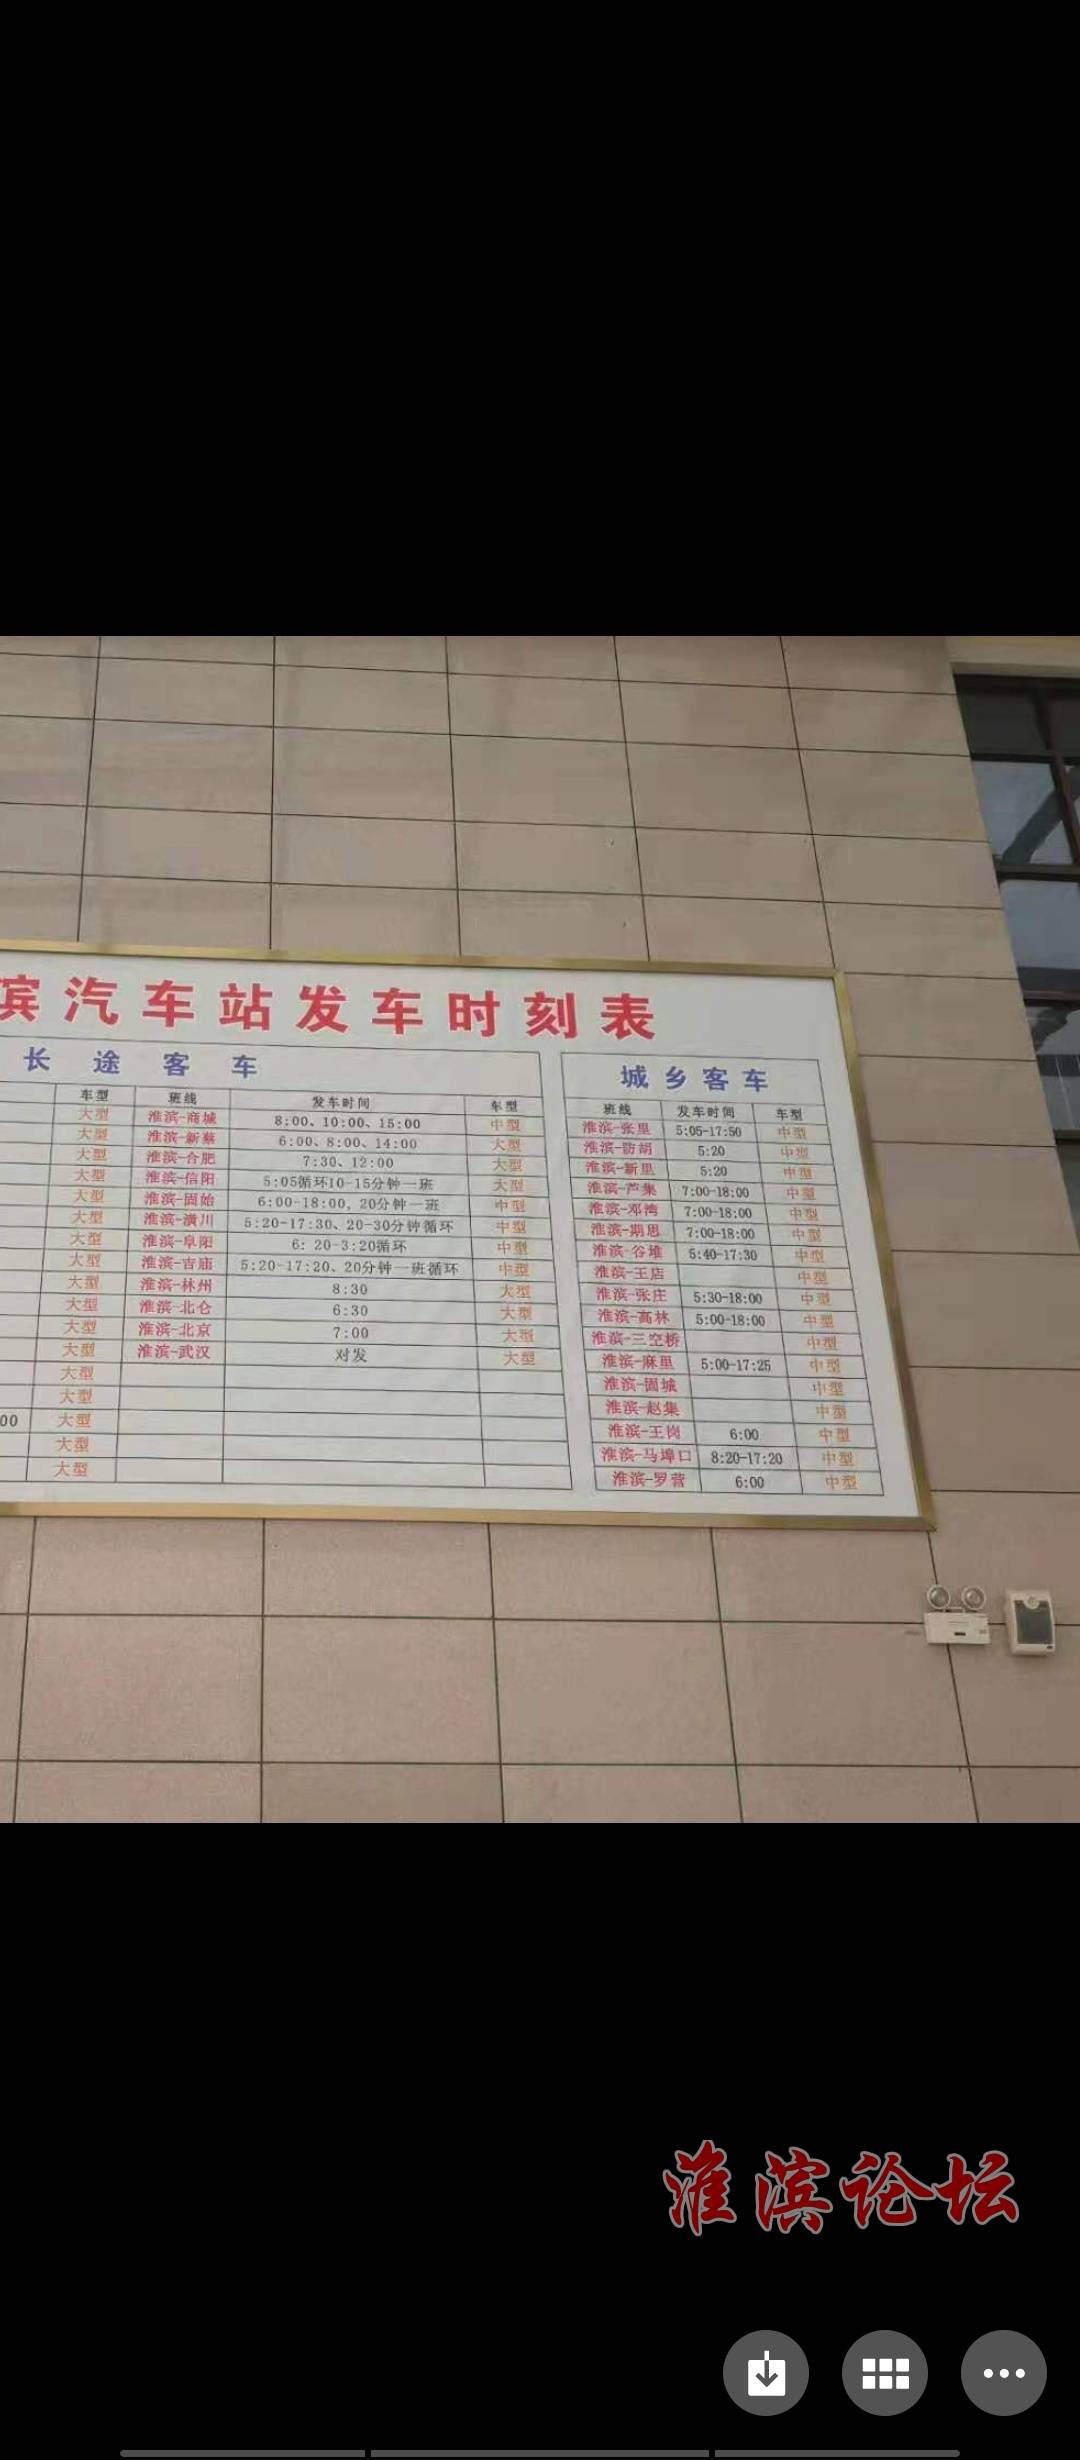 滨汽车站发车时刻表
长途客车
车型 班线 发车时间 车型
大型 淮滨-商城 8:00、10:00、15:00 中型
大型 淮滨-新蔡 6:00、8:00、14:00 大型
大型 淮滨-合肥 7:30、12:00 大型
大型 淮滨-信阳 5:05循环10-15分钟一班 大型
大型 淮滨-固始 6:00-18:00, 20分钟一班 中型
大型 淮滨-潢川 5:20-17:30、20-30分钟循环 中型
大型 淮滨-阜阳 6: 20-3:20循环 中型
大型 淮滨-吉庙 5:20-17:20、20分钟一班循环 中型
大型 淮滨-林州 8:30 大型
大型 淮滨-北仑 6:30 大型
大型 淮滨-北京 7:00 大型
大型 淮滨-武汉 对发 大型
大型
大型
00 大型
大型
大型
城乡客车
班线 发车时间 车型
淮滨-张里 5:05-17:50 中型
淮滨-防胡 5:20 中型
淮滨-新里 5:20 中型
淮滨-芦集 7:00-18:00 中型
淮滨-邓湾 7:00-18:00 中型
淮滨-期思 7:00-18:00 中型
淮滨-谷堆 5:40-17:30 中型
淮滨-王店 中型
淮滨-张庄 5:30-18:00 中型
淮滨-高林 5:00-18:00 中型
淮滨-三空桥 中型
淮滨-麻里 5:00-17:25 中型
淮滨-固城 中型
淮滨-赵集 中型
淮滨-王岗 6:00 中型
淮滨-马埠口 8:20-17:20 中型
淮滨-罗营 6:00 中型
淮滨论坛